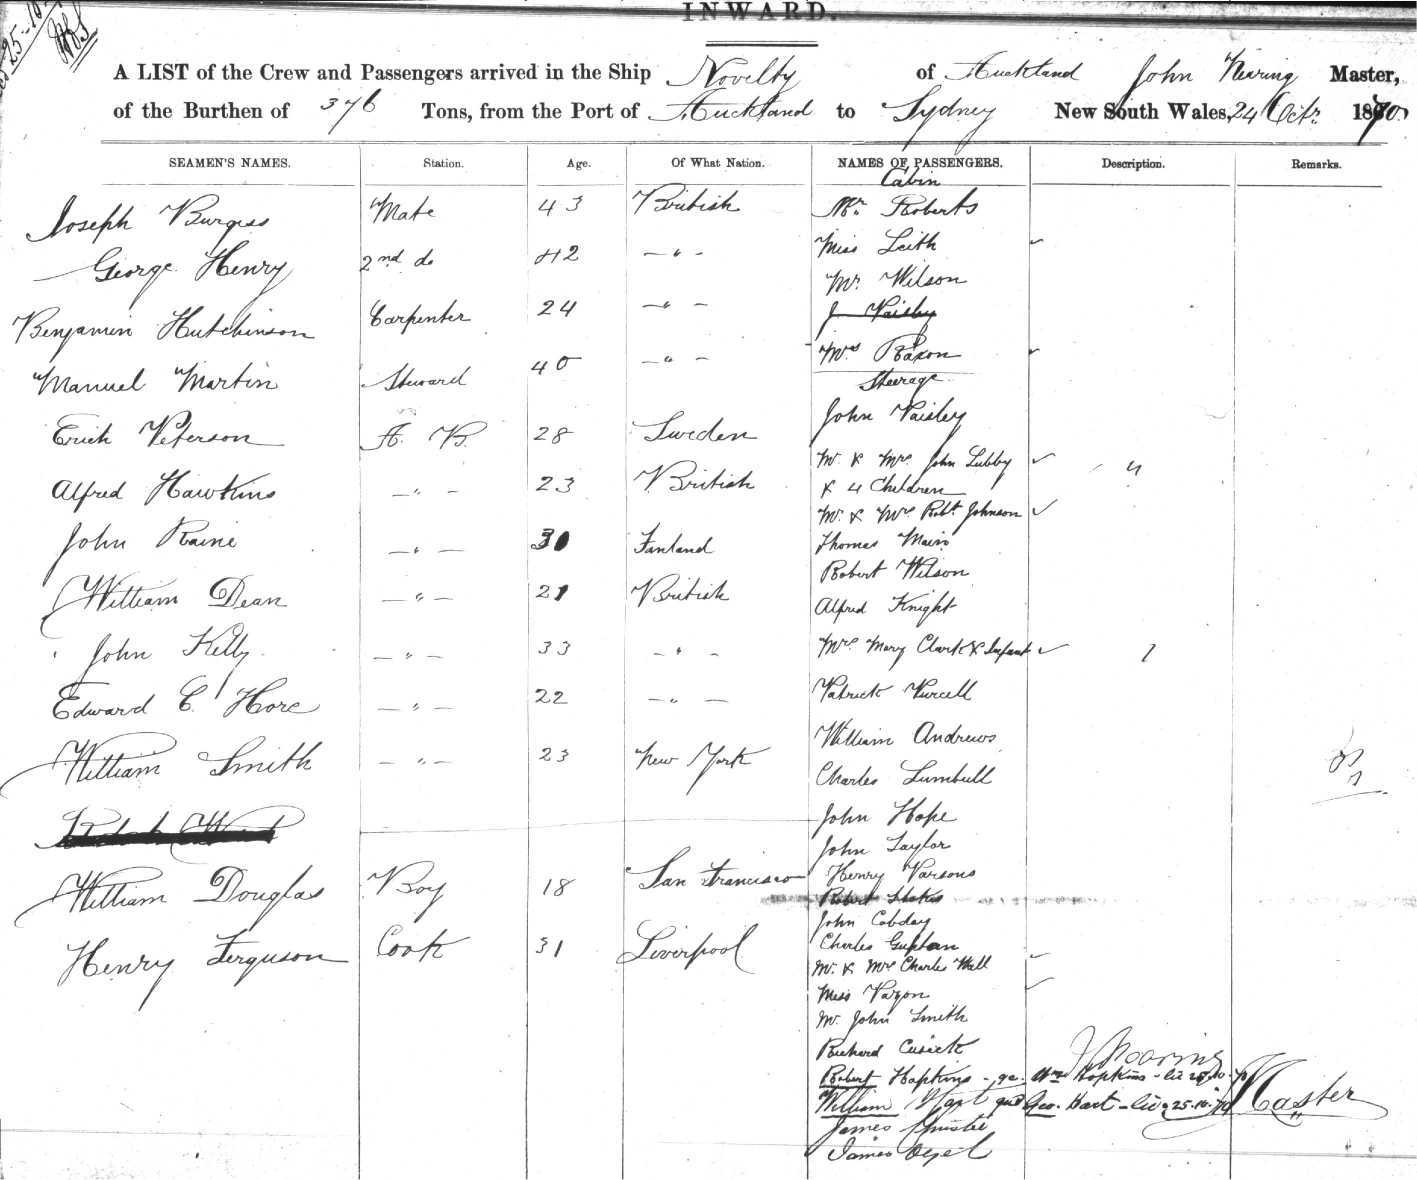 INWARD.
A LIST of the Crew and Passengers arrived in the Ship Novelty of Auckland John Nearing Master,
of the Burthen of 376 Tons, from the Port of Auckland to Sydney New South Wales, 24 Octr. 1870
SEAMEN'S NAMES. Station. Age. Of What Nation. NAMES OF PASSENGERS. Description. Remarks.
Joseph Burgess Mate 43 British
George Henry 2nd do 42 — " —
Benjamin Hutchinson Carpenter 24 — " —
Manuel Martin Steward 40 — " —
Erick Peterson A. B. 28 Sweden
Alfred Hawkins — " — 23 British
John Raine — " — 30 Finland
William Dean — " — 21 British
John Kelly — " — 33 — " —
Edward C. Hore — " — 22 — " —
William Smith — " — 23 New York
William Douglas Boy 18 San Francisco
Henry Ferguson Cook 31 Liverpool
Cabin
Mr. Roberts
Miss Leith
Mr. Wilson
J Paisley
Mrs Raxon
Steerage
John Paisley
Mr. & Mrs. John Lubby
& 4 Children
Mr. & Mrs Robt. Johnson
Thomas Main
Robert Wilson
Alfred Knight
Mrs. Mary Clark & Infant 1
Patrick Purcell
William Andrews
Charles Lumbull
John Hope
John Taylor
Henry Parsons
Robert Stokes
John Cobday
Charles
Mr. & Mrs Charles Hall
Miss
Mr. John Smith
Richard Cusick
Robert Hopkins Hopkins 25.10.70
William Hart Geo. Hart 25.10.70
James Christie
James
J Nearing
Master